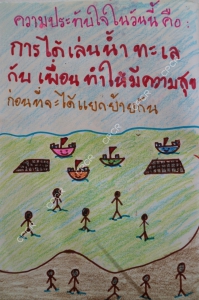 ความประทับใจในวันนี้ คือ :
การได้เล่นน้ำ ทะเล
กับ เพื่อน ทำให้มีความสุข
ก่อนที่จะได้แยกย้ายกัน